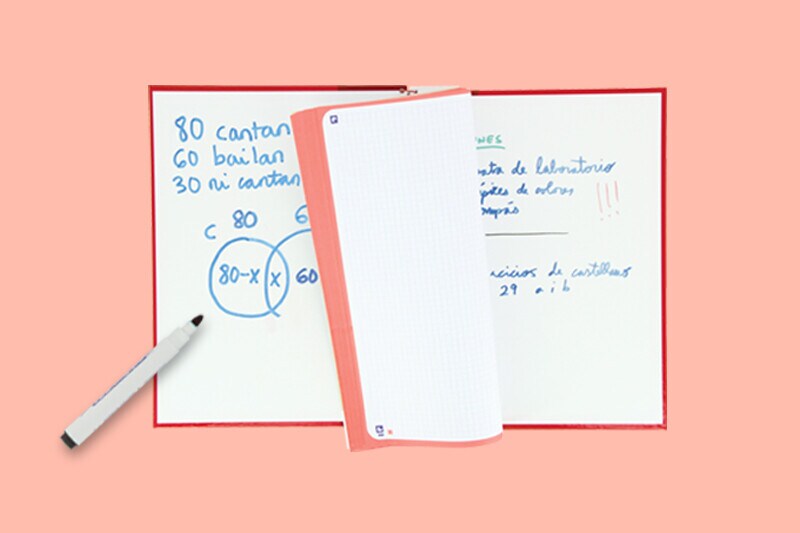 80 cantan
60 bailan
30 ni cantan
80 6
C
80-x x 60
NES
ata de laboratorio
de colores
!!!
ompás
cicios de castellano
29 a i b